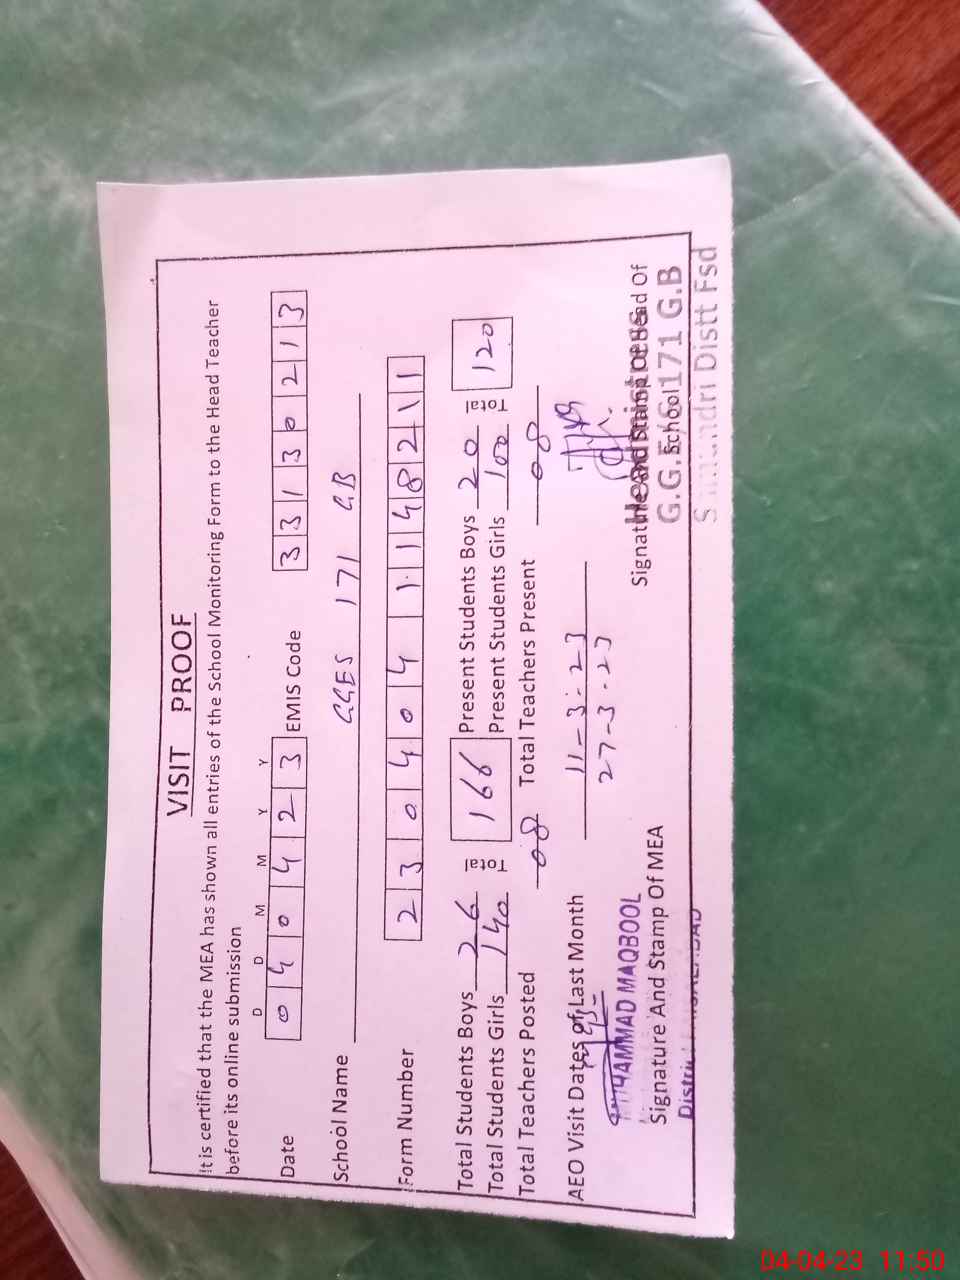 VISIT PROOF
It is certified that the MEA has shown all entries of the School Monitoring Form to the Head Teacher
before its online submission
D D M M Y Y
Date 040423 EMIS Code 33130213
School Name GGES 171 GB
Form Number 2304041148211
Total Students Boys 26 Total 166 Present Students Boys 20 Total 120
Total Students Girls 140 Present Students Girls 100
Total Teachers Posted 08 Total Teachers Present 08
AEO Visit Dates of Last Month 11-3-23
27-3-23
MUHAMMAD MAQBOOL
Signature And Stamp Of MEA
Signature And Stamp Of Head Of
School
Headmistress
G.G.E/S 171 G.B
Distt Fsd
04-04-23 11:50